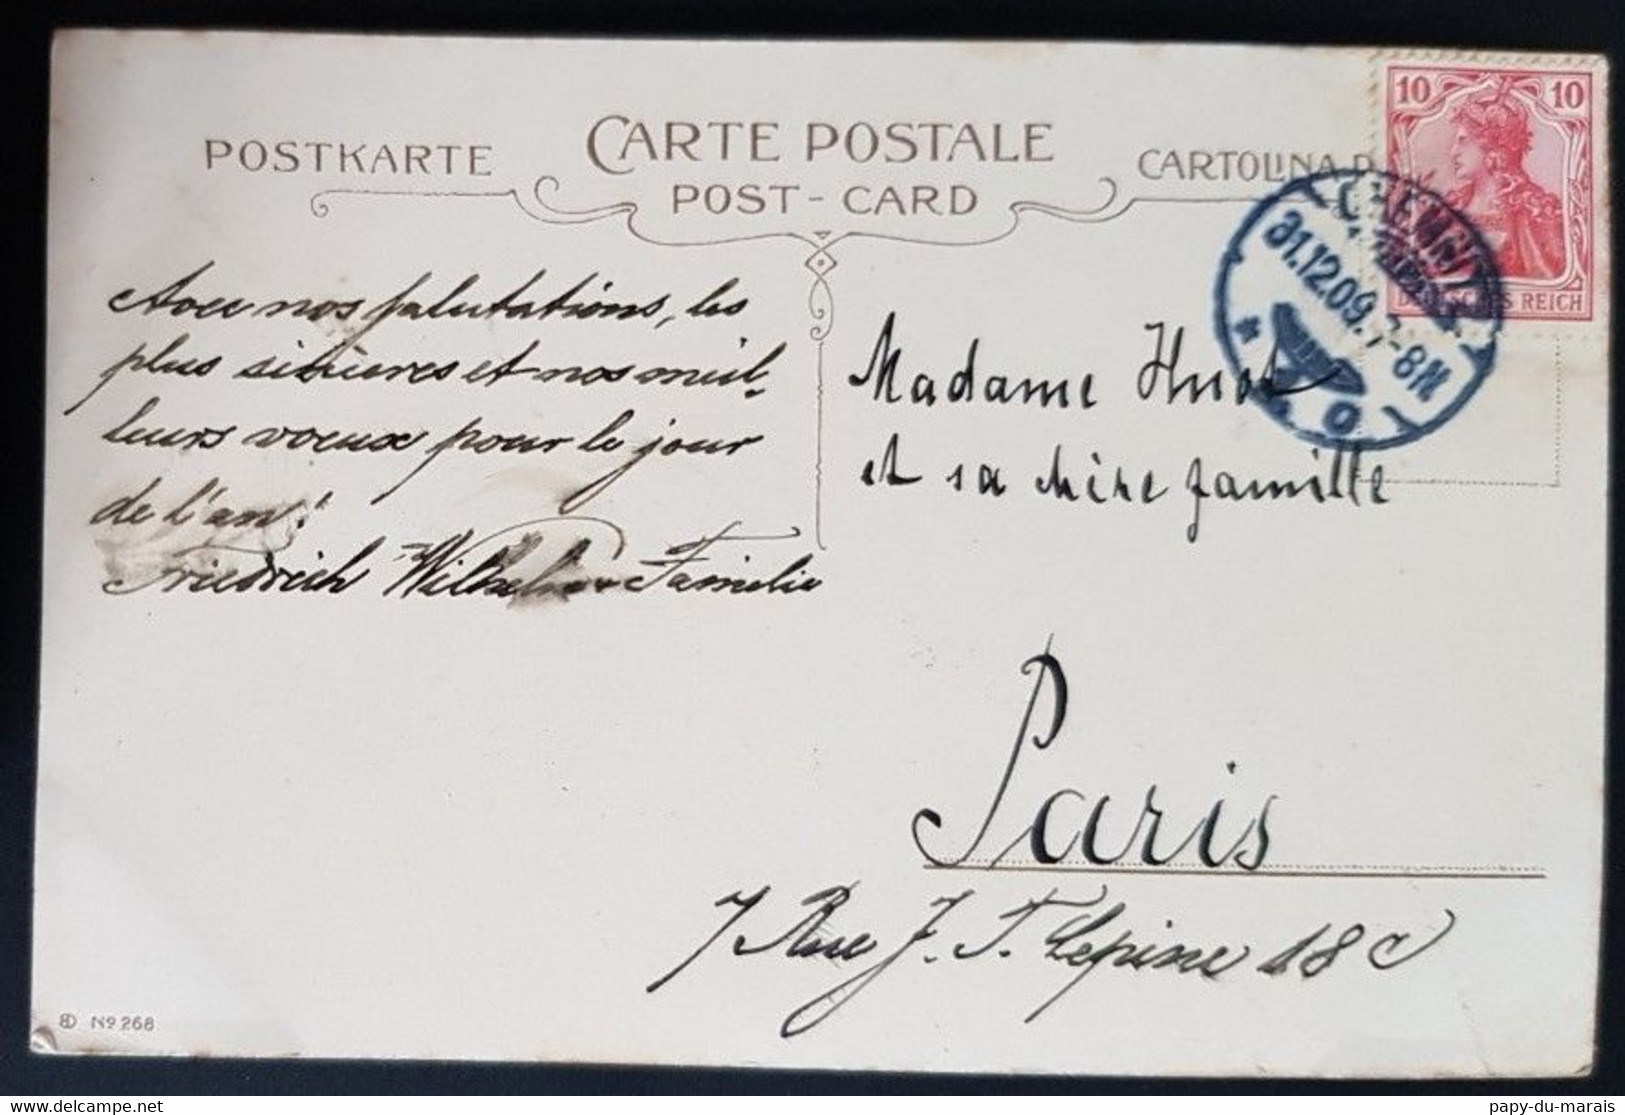 POSTKARTE
CARTE POSTALE
POST-CARD
CARTOLINA P
10 10
DEUTSCHES REICH
CHEMNITZ
31.12.09. 7-8N
Avec nos salutations, les
plus sincères et nos meil-
leurs voeux pour le jour
de l'an!
Friedrich Wilhelm Familie
Madame Huot
et sa chère famille
Paris
7 Rue J. F. Lepine 18e
No 268
www.delcampe.net
papy-du-marais